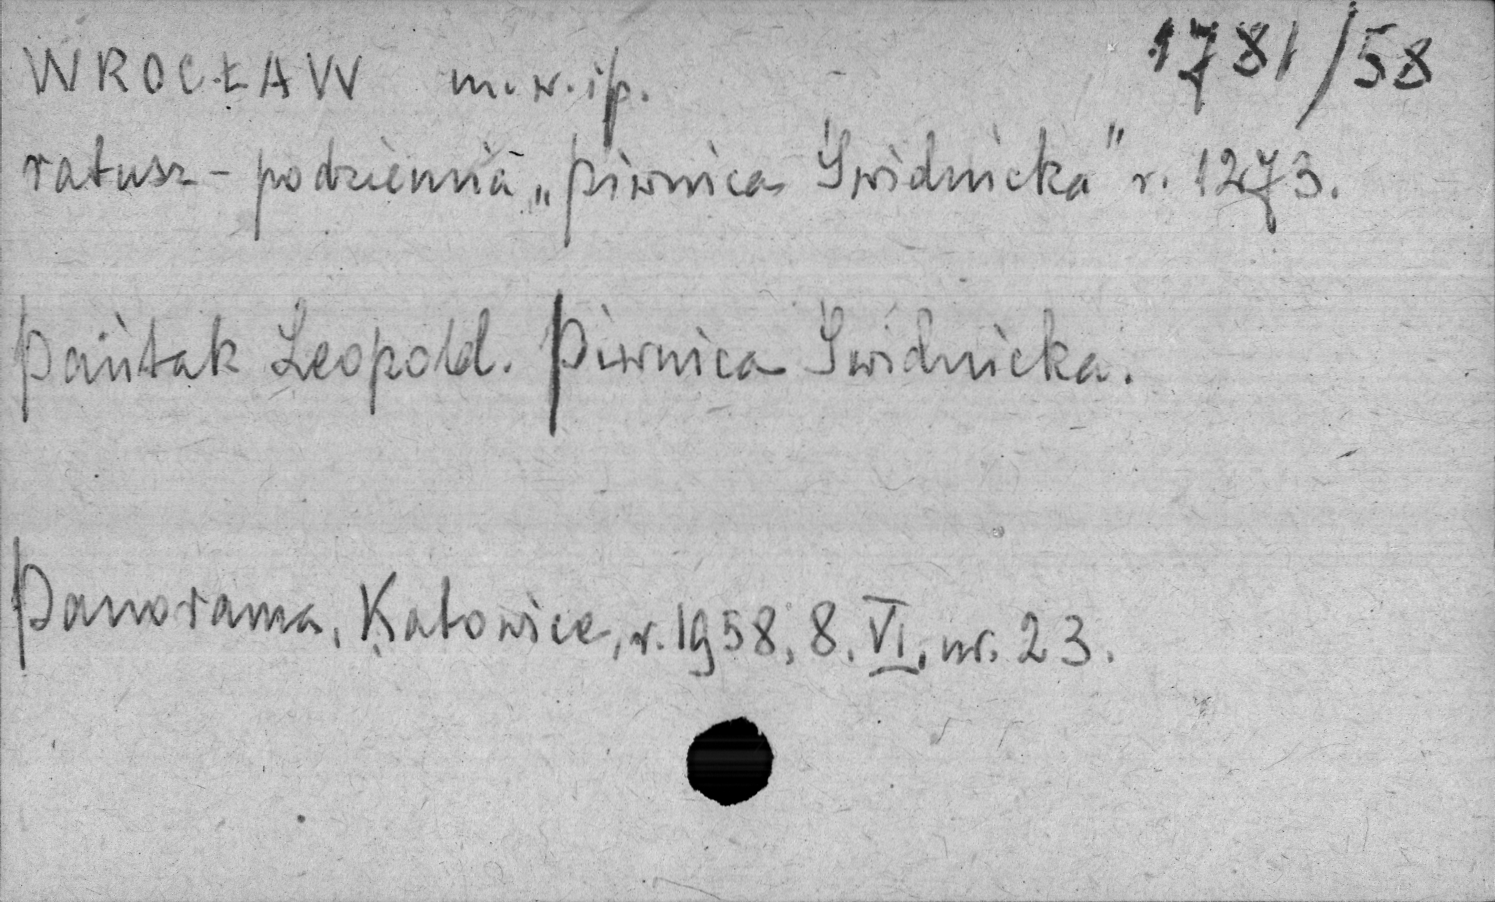 WROCŁAW m. w. i p. 1781/58
ratusz - podziemia „Piwnica Świdnicka" r. 1273.
Pańtak Leopold. Piwnica Świdnicka.
Panorama, Katowice, r. 1958, 8. VI, nr. 23.